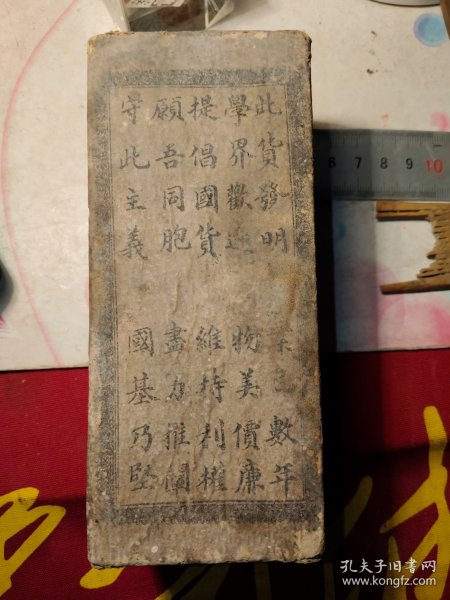 此貨發明 已數年
學界歡迎 物美價廉
提倡國貨 維持利權
願吾同胞 盡力推闡
守此主義 國基乃堅
7 8 9 10
孔夫子旧书网
www.kongfz.com